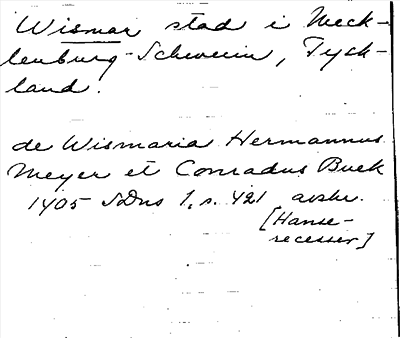 Wismar stad i Meck-
lenburg-Schwerin, Tysk-
land.
de Wismaria Hermannus
Meyer et Conradus Buek
1405 SDns 1, s. 421 avskr.
[Hanse-
recesser]